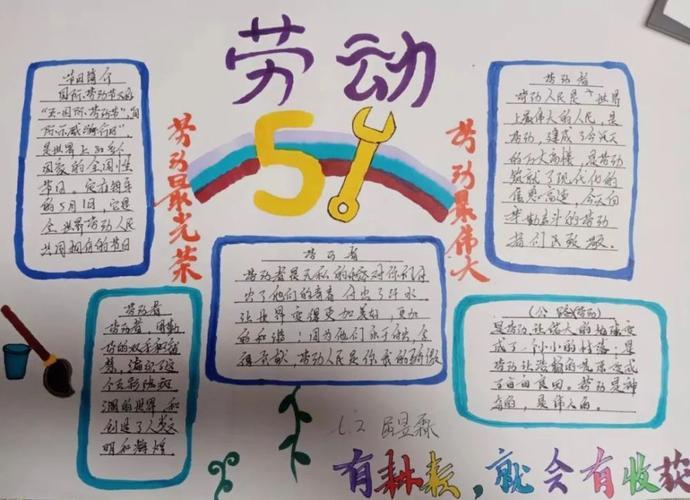 劳动
51
劳动最光荣
劳动最伟大
节日简介
国际劳动节又称
"五一国际劳动节","国
际示威游行日",
是世界上80多个
国家的全国性
节日。定在每年
的5月1日,它是
全世界劳动人民
共同拥有的节日
劳动者
劳动人民是世界
上最伟大的人民,是
劳动,建成了今天
的万丈高楼,是劳动
筑就了现代化的
信息高速,今天向
辛勤奋斗的劳动
者们致敬。
劳动者
劳动者是无私的
出了他们的青春 付出了汗水
让世界变得更加美好,更加
的和谐!因为他们乐于
劳动人民是你我的骄傲
劳动者
劳动者,用勤
劳的双手和智
慧,编织了这
个五彩
的世界,和
创造了人类文
明和辉煌
(公路劳动)
是劳动,让
成了一个小小的村落;是
劳动,让
了 良田。劳动是神
奇的,是伟大的。
七.2
有耕耘,就会有收获